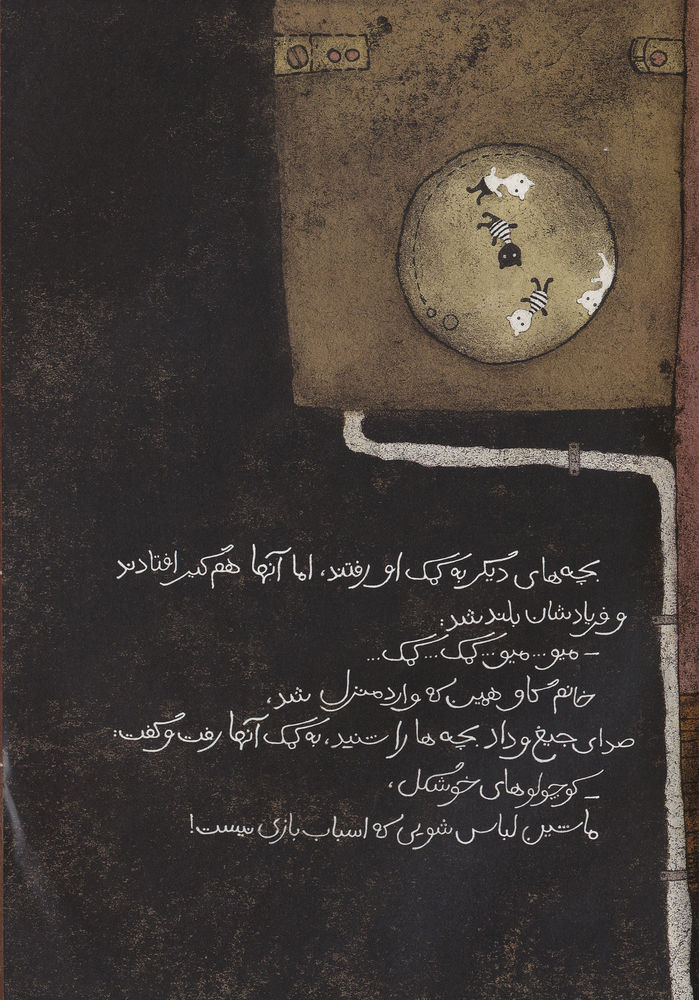 بچه‌های دیگر به کمک او رفتند، اما آنها هم گیر افتادند
و فریادشان بلند شد:
– میو... میو... کمک... کمک...
خانم گاو همین که وارد منزل شد،
صدای جیغ و داد بچه ها را شنید، به کمک آنها رفت و گفت:
– کوچولوهای خوشگل،
ماشین لباس شویی که اسباب بازی نیست!